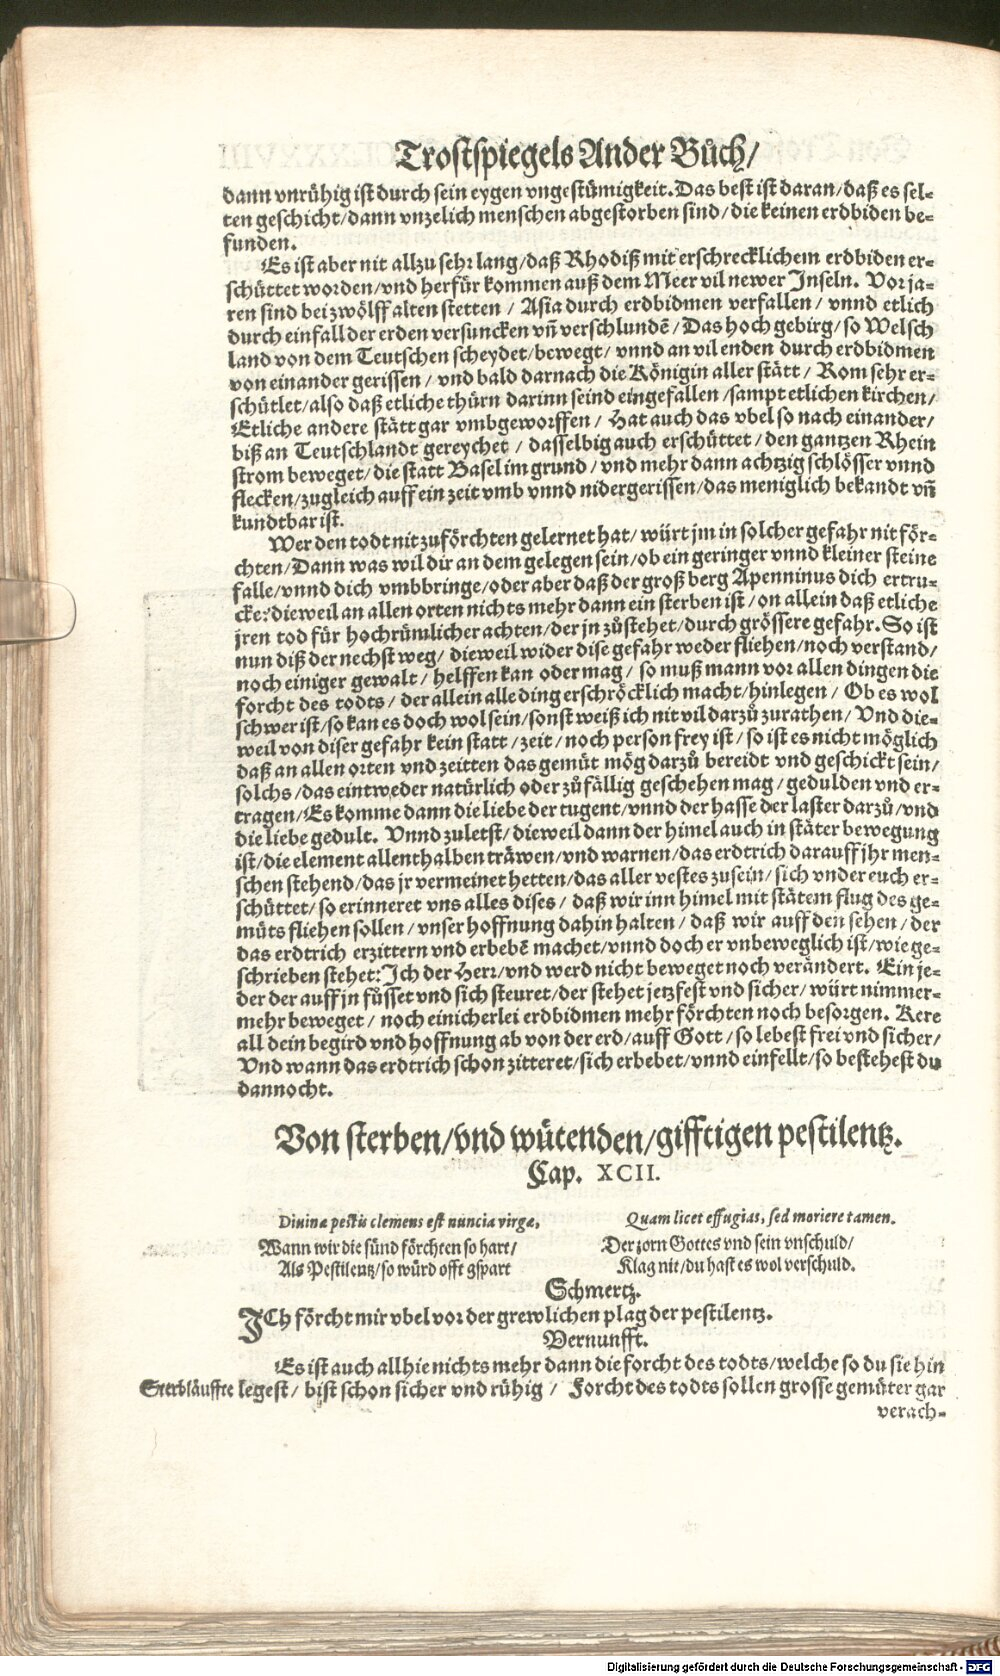 Trostspiegels Ander Bůch/
dann vnrühig ist durch sein eygen vngestümigkeit. Das best ist daran/daß es sel-
ten geschicht/dann vnzelich menschen abgestorben sind/die keinen erdbiden be-
funden.
Es ist aber nit allzu sehr lang/daß Rhodiß mit erschrecklichem erdbiden er-
schüttet worden/vnd herfür kommen auß dem Meer vil newer Inseln. Vor ja-
ren sind bei zwölff alten stetten/ Asia durch erdbidmen verfallen/ vnnd etlich
durch einfall der erden versuncken vñ verschlundẽ/Das hoch gebirg/so Welsch
land von dem Teutschen scheydet/bewegt/ vnnd an vil enden durch erdbidmen
von einander gerissen/ vnd bald darnach die Königin aller stätt/ Rom sehr er-
schütlet/also daß etliche thürn darinn seind eingefallen/sampt etlichen kirchen/
Etliche andere stätt gar vmbgeworffen/ Hat auch das vbel so nach einander/
biß an Teutschlandt gereychet/ dasselbig auch erschüttet/den gantzen Rhein
strom beweget/die statt Basel im grund/ vnd mehr dann achtzig schlösser vnnd
flecken/zugleich auff ein zeit vmb vnnd nidergerissen/das meniglich bekandt vñ
kundtbar ist.
Wer den todt nit zuförchten gelernet hat/ würt jm in solcher gefahr nit för-
chten/Dann was wil dir an dem gelegen sein/ob ein geringer vnnd kleiner steine
falle/vnnd dich vmbbringe/oder aber daß der groß berg Apenninus dich ertru-
cke: dieweil an allen orten nichts mehr dann ein sterben ist/on allein daß etliche
jren tod für hochrümlicher achten/der jn zůstehet/durch grössere gefahr. So ist
nun diß der nechst weg/ dieweil wider dise gefahr weder fliehen/noch verstand/
noch einiger gewalt/ helffen kan oder mag/ so muß mann vor allen dingen die
forcht des todts/ der allein alle ding erschröcklich macht/hinlegen/ Ob es wol
schwer ist/so kan es doch wol sein/sonst weiß ich nit vil darzů zurathen/ Vnd die-
weil von diser gefahr kein statt/zeit/noch person frey ist/so ist es nicht möglich
daß an allen orten vnd zeitten das gemüt mög darzů bereidt vnd geschickt sein/
solchs/das eintweder natürlich oder zůfällig geschehen mag/gedulden vnd er-
tragen/Es komme dann die liebe der tugent/vnnd der hasse der laster darzů/vnd
die liebe gedult. Vnnd zuletst/dieweil dann der himel auch in stäter bewegung
ist/die element allenthalben träwen/vnd warnen/das erdtrich darauff jhr men-
schen stehend/das jr vermeinet hetten/das aller vestes zusein/sich vnder euch er-
schüttet/so erinneret vns alles dises/ daß wir inn himel mit stätem flug des ge-
müts fliehen sollen/vnser hoffnung dahin halten/ daß wir auff den sehen/der
das erdtrich erzittern vnd erbebẽ machet/vnnd doch er vnbeweglich ist/wie ge-
schrieben stehet: Ich der Herr/vnd werd nicht beweget noch verändert. Ein je-
der der auff jn fůsset vnd sich steuret/der stehet jetz fest vnd sicher/würt nimmer-
mehr beweget/ noch einicherlei erdbidmen mehr förchten noch besorgen. Kere
all dein begird vnd hoffnung ab von der erd/auff Gott/so lebest frei vnd sicher/
Vnd wann das erdtrich schon zitteret/sich erbebet/vnnd einfellt/so bestehest du
dannocht.
Von sterben/vnd wütenden/gifftigen pestilentz.
Cap. XCII.
Diuinæ pestis clemens est nuncia virgæ,
Quam licet effugias, sed moriere tamen.
Wann wir die sünd förchten so hart/
Als Pestilentz/so würd offt gspart
Der zorn Gottes vnd sein vnschuld/
Klag nit/du hast es wol verschuld.
Schmertz.
ICh förcht mir vbel vor der grewlichen plag der pestilentz.
Vernunfft.
Es ist auch allhie nichts mehr dann die forcht des todts/welche so du sie hin
Sterbläuffte legest/ bist schon sicher vnd rühig/ Forcht des todts sollen grosse gemüter gar
verach-
Digitalisierung gefördert durch die Deutsche Forschungsgemeinschaft - DFG